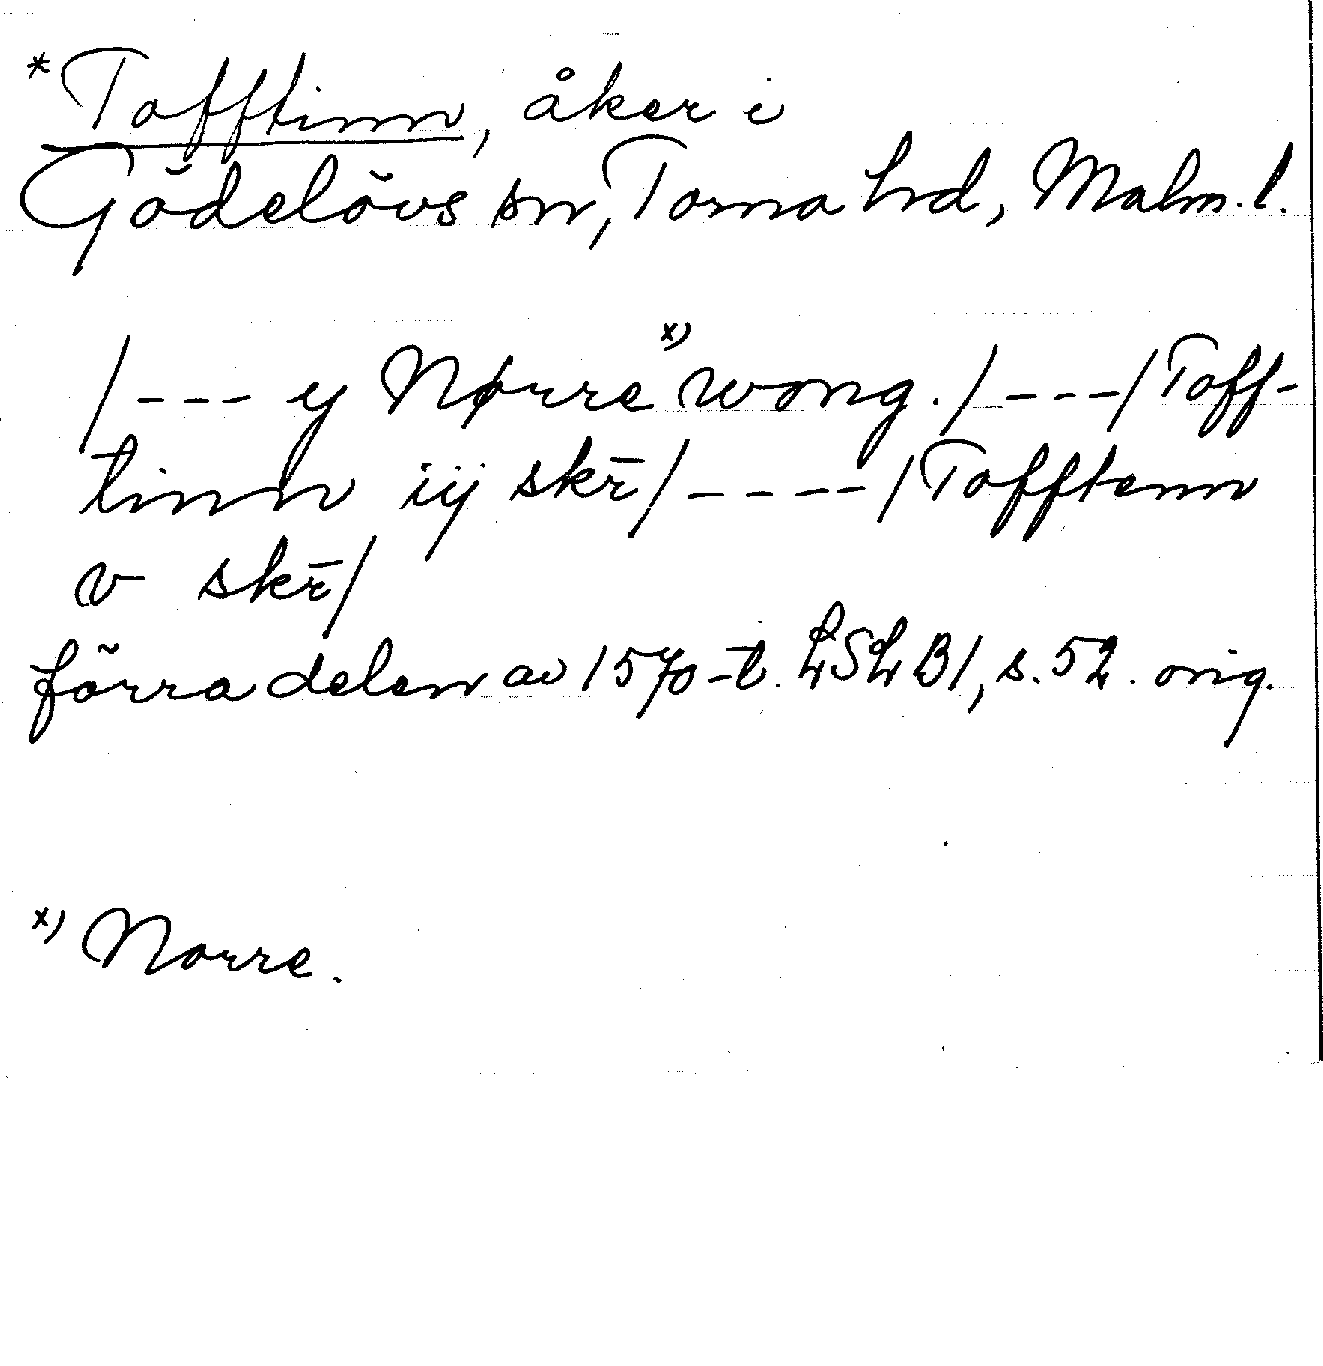 *Tofftinn, åker i
Gödelövs sn, Torna hrd, Malm. l.
/--- y Nørre x) wong. /---/ Toff-
tinn iij skr̄/----/Tofftenn
v skr̄/
förra delen av 1570-t. LSLB1, s. 52. orig.
x) Norre.